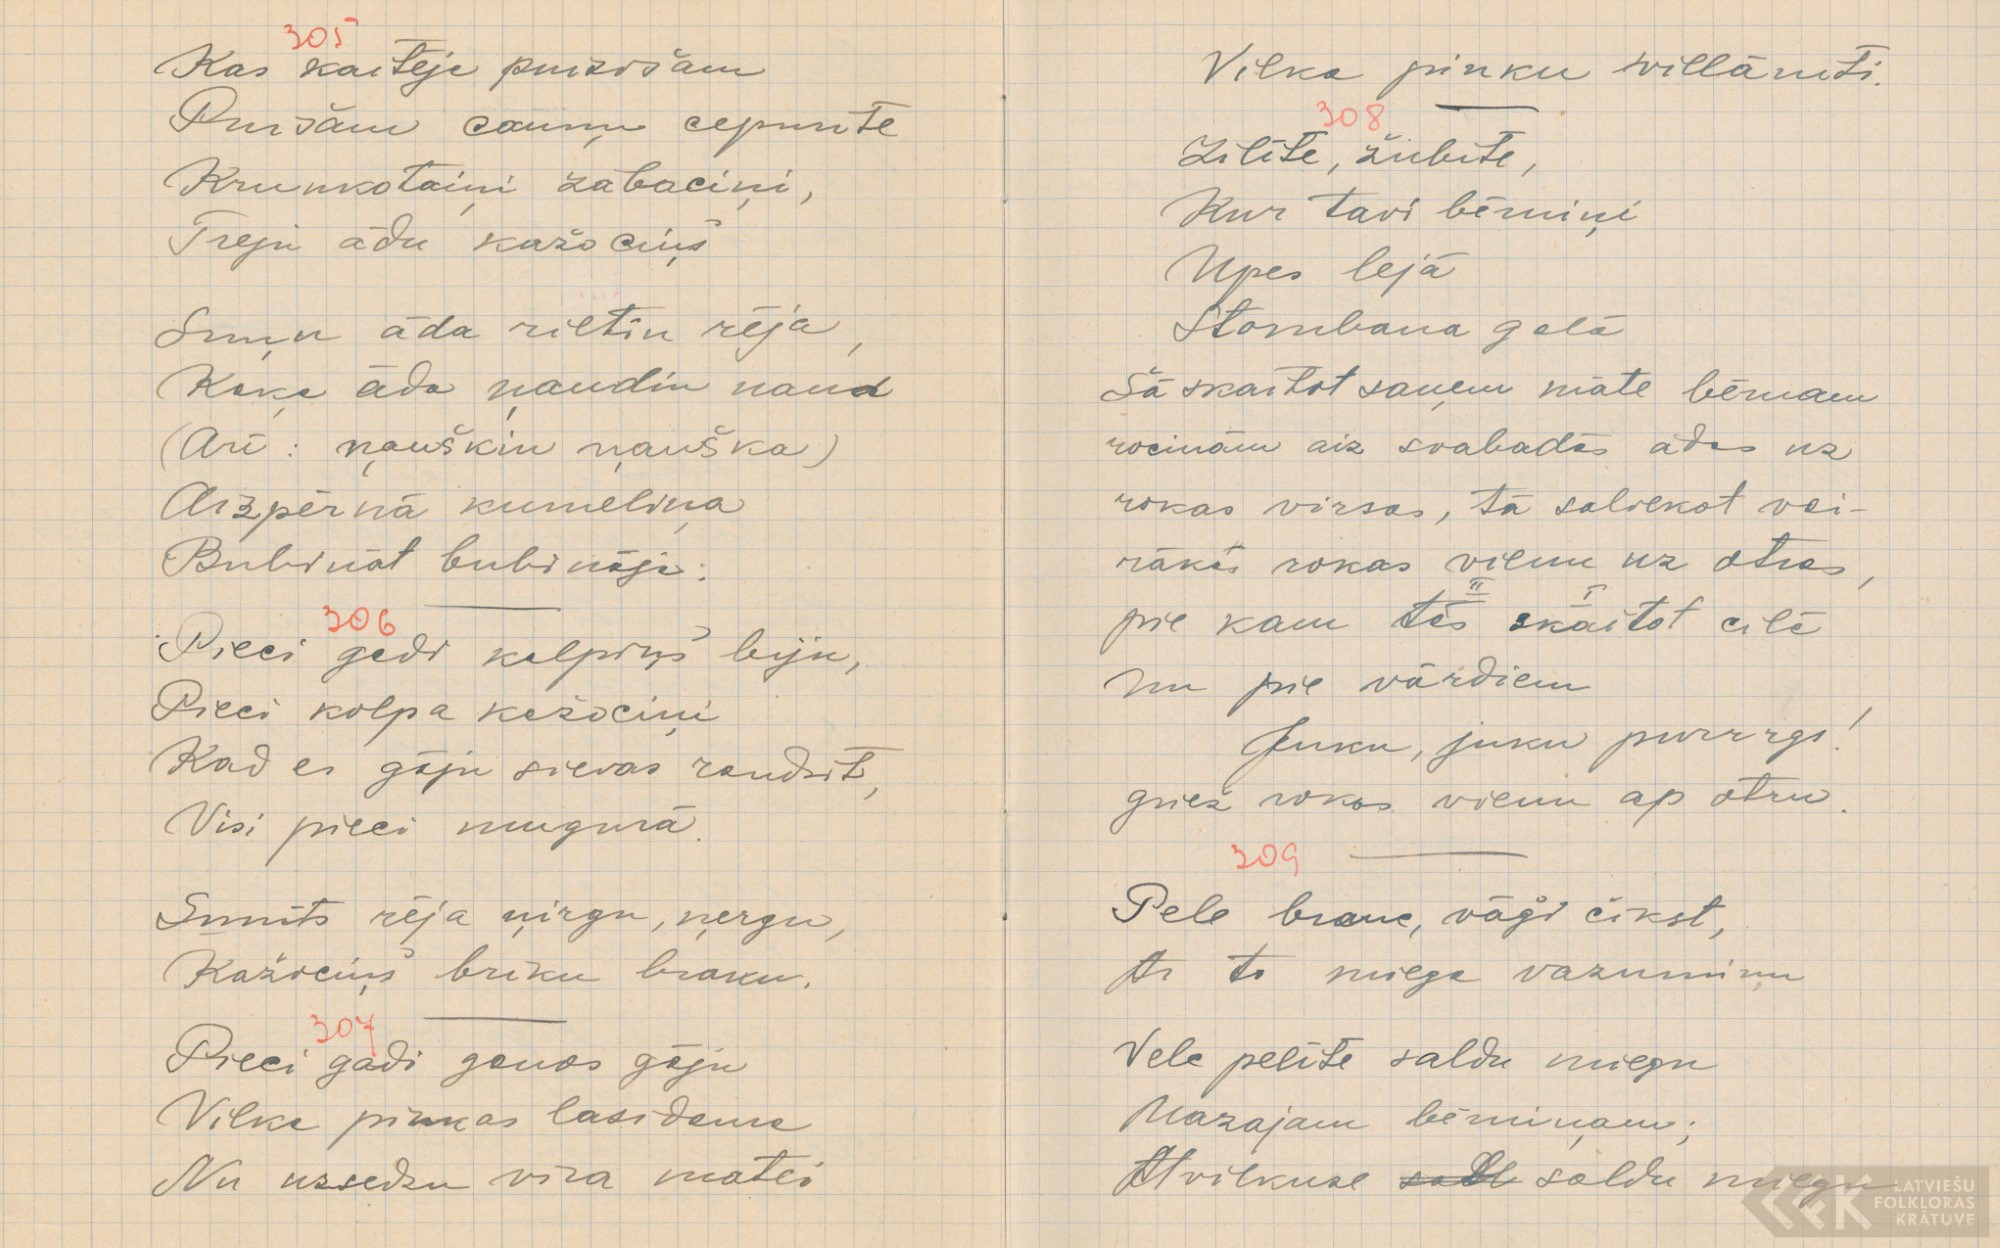 305
Kas kaitēje puisišam
Puišam cauņu cepurīte
Krunkotaiņi zābaciņi,
Treju ādu kažociņš
Suņu āda rietin rēja,
Kaķa āda ņaudin naud
(Arī: ņauškin ņauška)
Aizpērnā kumeliņa
Bubināt bubināja.
306
Pieci gadi kalpiņš biju,
Pieci kalpa kažociņi
Kad es gāju sievas raudzīt,
Visi pieci mugurā.
Sunīts rēja ņirgu, ņergu,
Kažociņš brīku braku.
307
Pieci gadi ganos gāju
Vilka pinkas lasīdama
Nu uzsedzu vīra mātei
Vilka pinku villānīti.
308
Zīlīte, žubīte,
Kur tavi bērniņi
Upes lejā
Stombana galā
Šā skaitot saņem māte bērnam
rociņām aiz svabadās ādas uz
rokas virsas, tā saliekot vai-
rākās rokas vienu uz otras,
pie kam tās II skaitot I cilā
un pie vārdiem
Juku, juku purrrgs!
griež rokas vienu ap otru.
309
Pele brauc, vāģi čīkst,
Ar to miega vazumiņu
Vele pelīte saldu miegu
Mazajam bērniņam;
Atvilkuse saldu miegu
LATVIEŠU
FOLKLORAS
KRĀTUVE